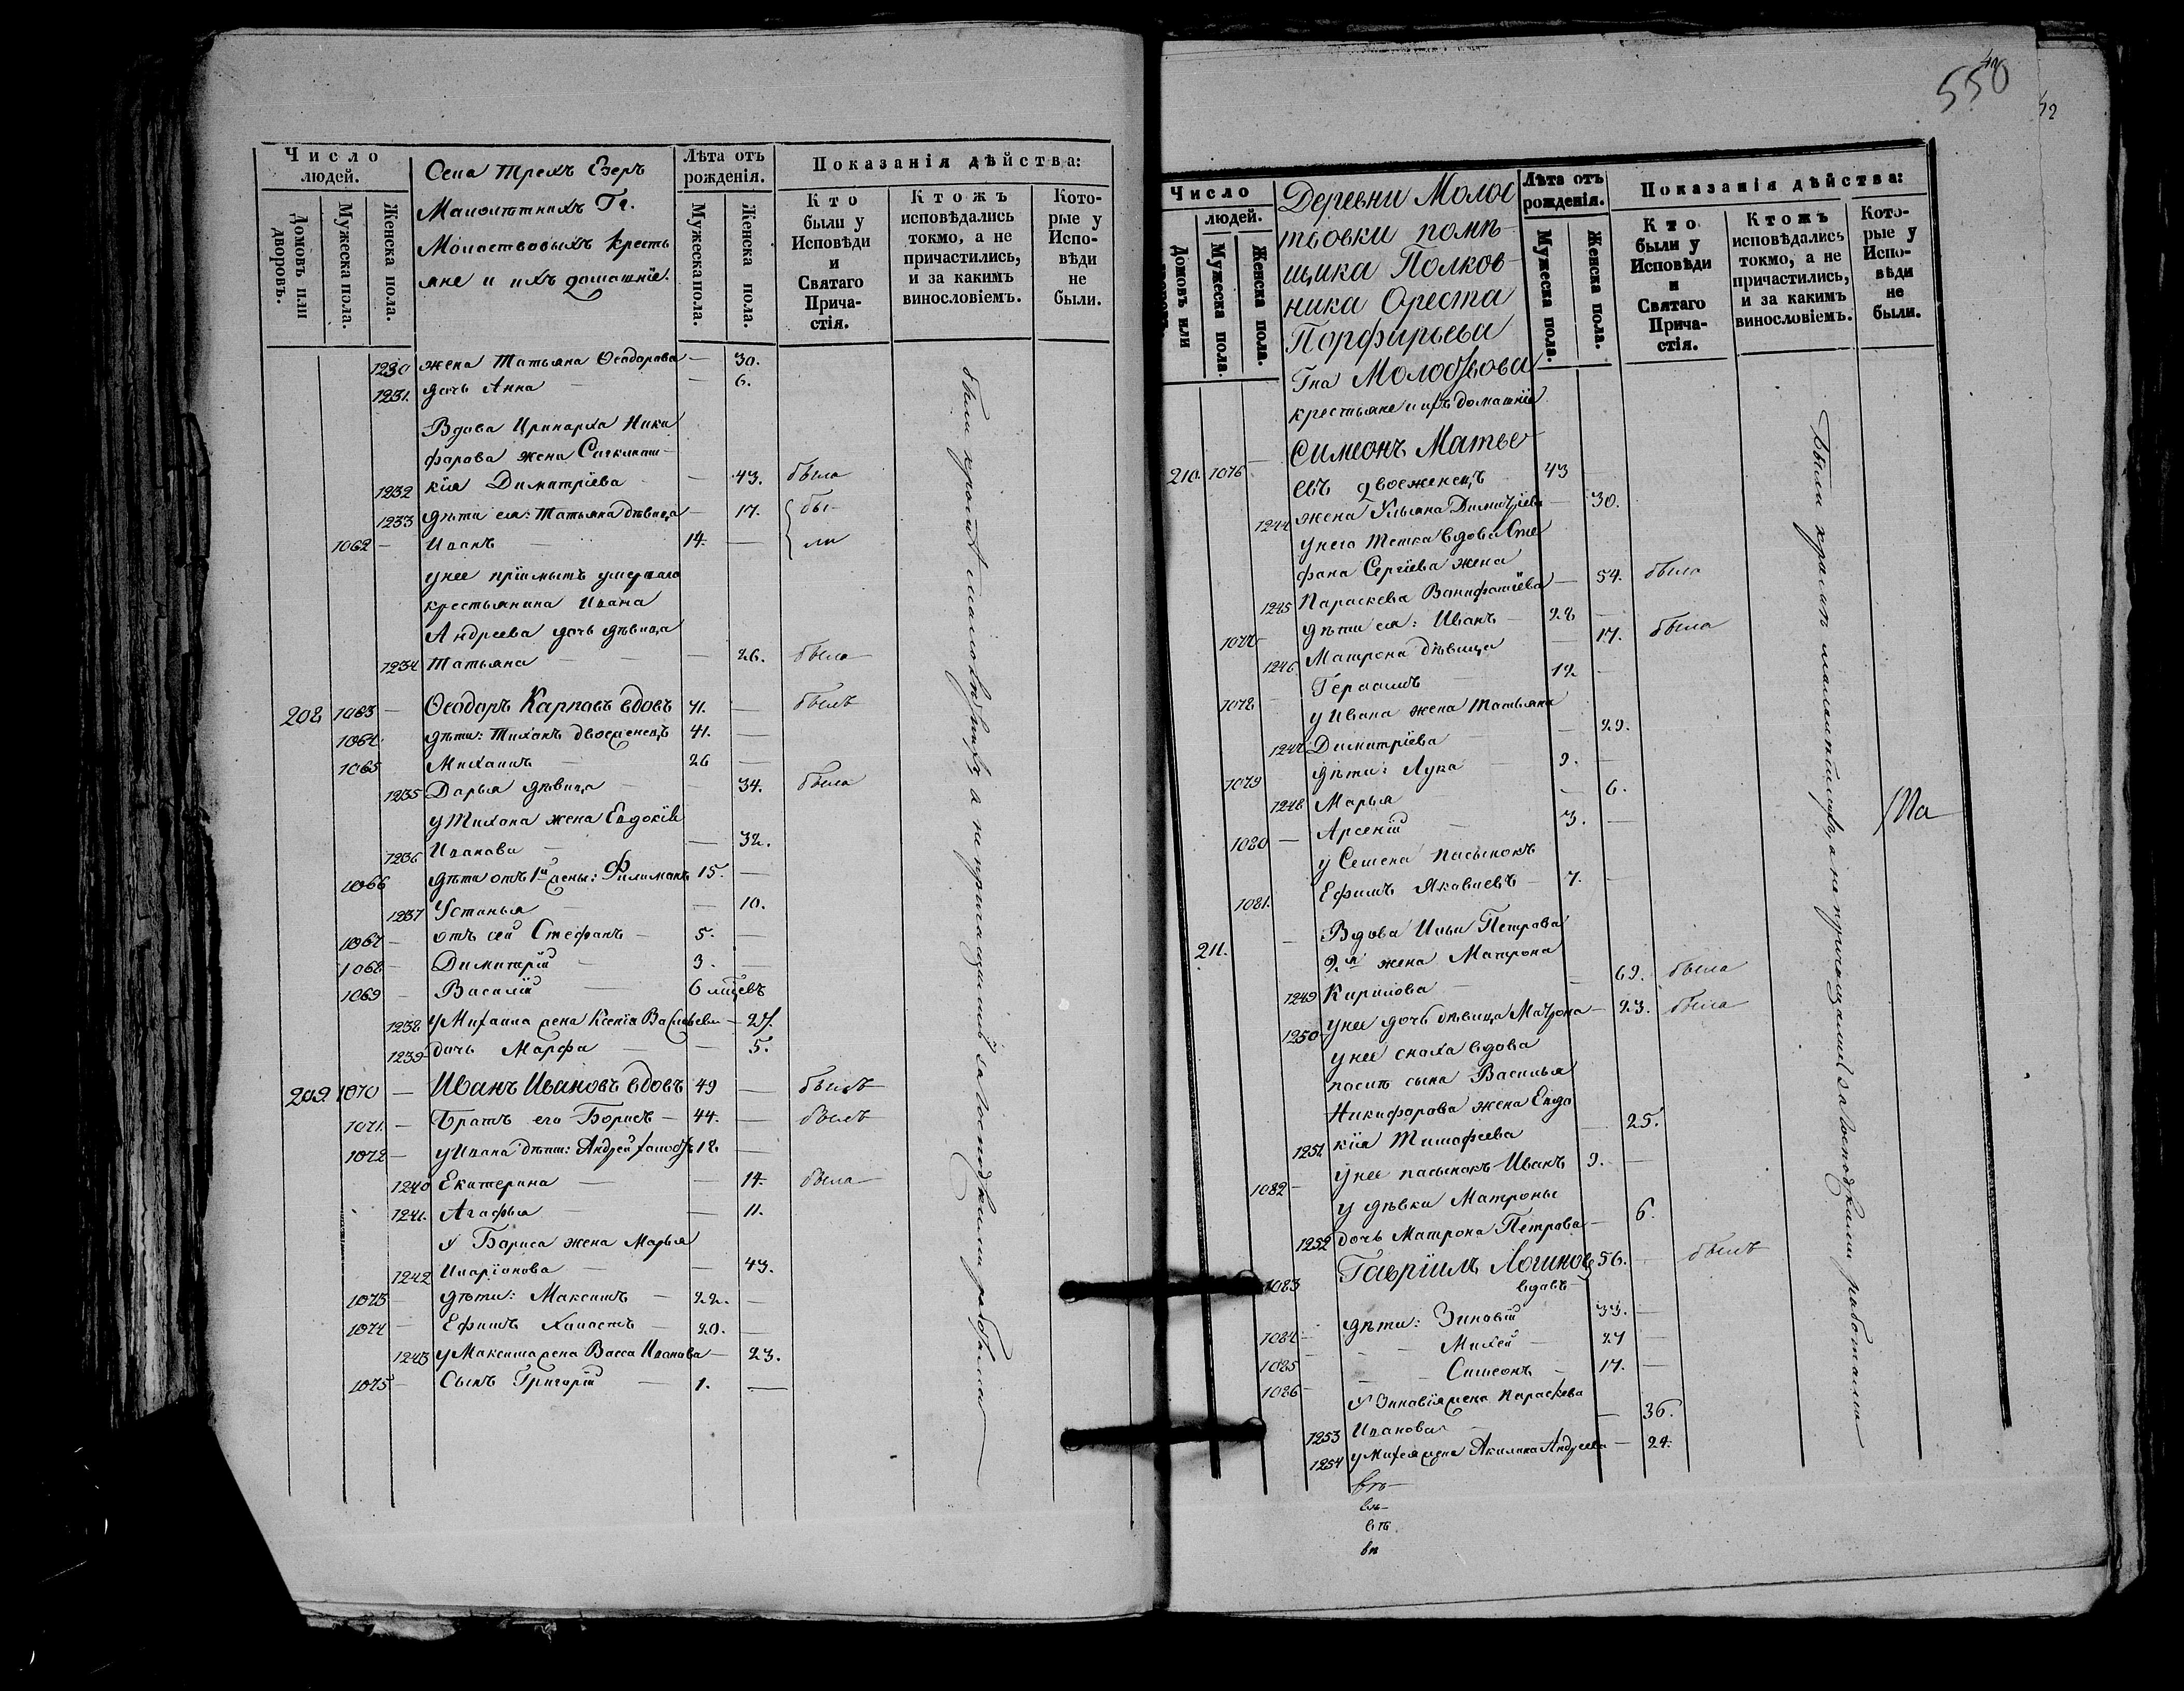 Число людей.
Домовъ или дворовъ.
Мужеска пола.
Женска пола.
Села Трехъ Езеръ
Малолѣтнихъ Гг.
Молоствовыхъ кресть
яне и ихъ домашнiе.
Лѣта отъ рожденiя.
Мужеска пола.
Женска пола.
Показанiя дѣйства:
Кто были у Исповѣди и Святаго Прича-стiя.
Ктожъ исповѣдались токмо, а не причастились, и за какимъ винословiемъ.
Кото-рые у Испо-вѣди не были.
1230 жена Татьяна Ѳеодорова — 30.
1231. дочь Анна — 6.
Вдова Иринарха Ники
форова жена
1232 кiя Димитрiева — 43. была
1233 дѣти ея: Татьяна дѣвица — 17. бы-
1062 — Иванъ — 14. — ли
у нее прiимышъ умершаго
крестьянина Ивана
Андреева дочь дѣвица
1234 Татьяна — 26. была
208 1063 — Ѳеодоръ Карповъ вдовъ 71. — былъ
1064 дѣти: Тихонъ двоеженецъ 41. —
1065 Михаилъ — 26 —
1235 Дарья дѣвица — 34. была
у Тихона жена Евдокiя
1236 Иванова — 32.
1066 дѣти отъ 1й жены: Филимонъ 15. —
1237 Устинья — 10.
1067 — отъ сей Стефанъ — 5. —
1068 — Димитрiй — 3. —
1069 — Василiй — 6 мѣцевъ
1238 у Михаила жена Ксенiя Васильева — 27.
1239 дочь Марфа — 5.
209. 1070 — Иванъ Ивановъ вдовъ 49 — былъ
1071. — Братъ его Борисъ — 44. — былъ
1072 — у Ивана дѣти: Андрей холостъ 18 —
1240 Екатерина — 14. была
1241. Агафья — 11.
У Бориса жена Марья
1242 Иларiонова — 43.
1073 — дѣти: Максимъ — 22. —
1074 — Ефимъ холостъ — 20. —
1243 у Максима жена Васса Иванова — 23.
1075 — Сынъ Григорiй — 1. —
были кромѣ малолѣтнихъ а не причащались за господскими работами
550
42
Число людей.
Домовъ или
Мужеска пола.
Женска пола.
Деревни Молос
твовки помѣ-
щика Полков-
ника Ореста
Порфирьева
Гна Молоствова
крестьяне и ихъ домашнiе
Лѣта отъ рожденiя.
Мужеска пола.
Женска пола.
Показанiя дѣйства:
Кто были у Исповѣди и Святаго Прича-стiя.
Ктожъ исповѣдались токмо, а не причастились, и за какимъ винословiемъ.
Кото-рые у Испо-вѣди не были.
Симеонъ Матве
210. 1076 — евъ двоеженецъ 43 —
1244 жена Ульяна Димитрiева — 30.
у него тетка вдова Сте
фана Сергiева жена
1245 Параскева Вонифатiева — 54. была
1077 дѣти ея: Иванъ — 28 —
1246. Матрона дѣвица — 17. была
1078 — Герасимъ — 12 —
у Ивана жена Татьяна
1247 Димитрiева — 29.
1079 дѣти: Лука — 9. —
1248 Марья — 6.
1080 — Арсенiй — 3. —
у Семена пасынокъ
1081. Ефимъ Яковлевъ — 7. —
211. — Вдова Ильи Петрова
2.я жена Матрона
1249 Кирилова — 69. была
1250 у нее дочь дѣвица Матрона — 23. была
у нее сноха вдова
посли сына Василья
Никифорова жена Евдо
1251. кiя Тимофеева — 25.
1082 — у нее пасынокъ Иванъ 9. —
у дѣвки Матроны
1252 дочь Матрона Петрова — 6.
1083 Гаврiилъ Логиновъ 56. — былъ
вдовъ
1084 — дѣти: Зиновiй 33. —
1085 — Михей — 27 —
1086 — Симеонъ — 17. —
У Зиновiя жена Параскева
1253 Иванова — 36.
1254 у Михея жена Акилина Андреева — 24.
были кромѣ малолѣтныхъ, а не причащались за господскими работами